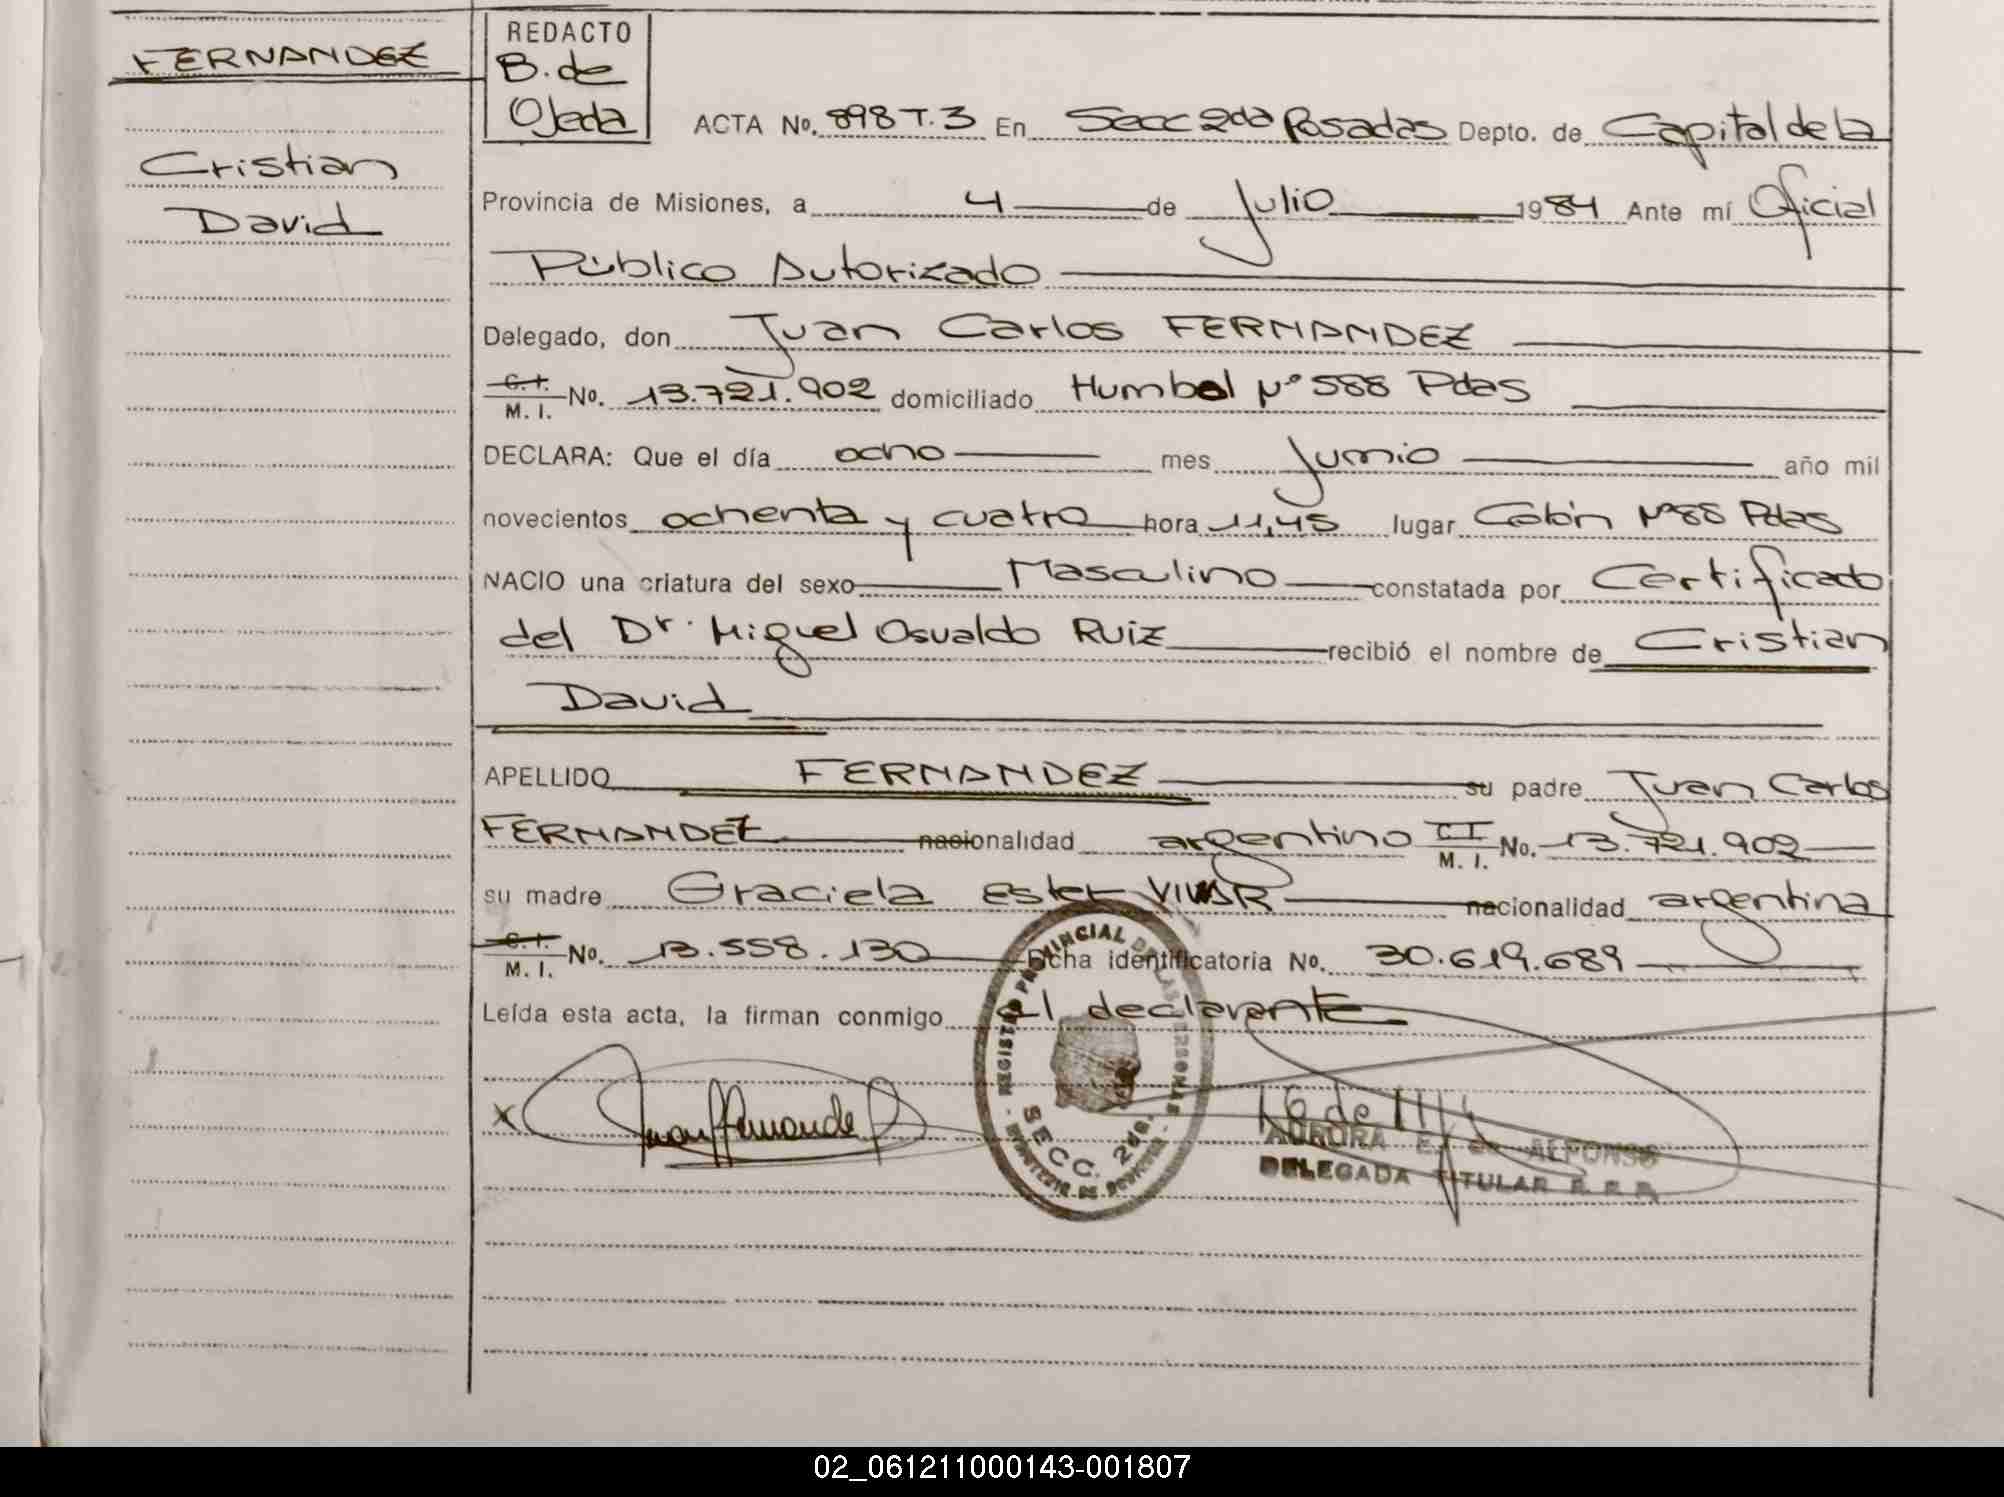 FERNANDEZ
Cristian
David
REDACTO
B. de
Ojeda
ACTA No. 898 T. 3 En Secc 2da Posadas Depto. de Capital de la
Provincia de Misiones, a 4 de Julio 1984 Ante mí Oficial
Público Autorizado
Delegado, don Juan Carlos FERNANDEZ
C. I. M. I. No. 13.721.902 domiciliado Humbol Nº 588 Pdas
DECLARA: Que el día ocho mes Junio año mil
novecientos ochenta y cuatro hora 11,45 lugar Colón Nº 88 Pdas
NACIO una criatura del sexo Masculino constatada por Certificado
del Dr. Miguel Osvaldo RUIZ recibió el nombre de Cristian
David
APELLIDO FERNANDEZ su padre Juan Carlos
FERNANDEZ nacionalidad argentino C I M. I. No. 13.721.902
su madre Graciela Ester VIVAR nacionalidad argentina
C. I. M. I. No. 13.558.130 Ficha identificatoria No. 30.619.689
Leída esta acta, la firman conmigo el declarante
x Juan Fernandez
REGISTRO PROVINCIAL DE LAS PERSONAS
SECC. 2da.
MINISTERIO DE GOBIERNO
AURORA E. de ALFONSO
DELEGADA TITULAR R. P. P.
02_061211000143-001807